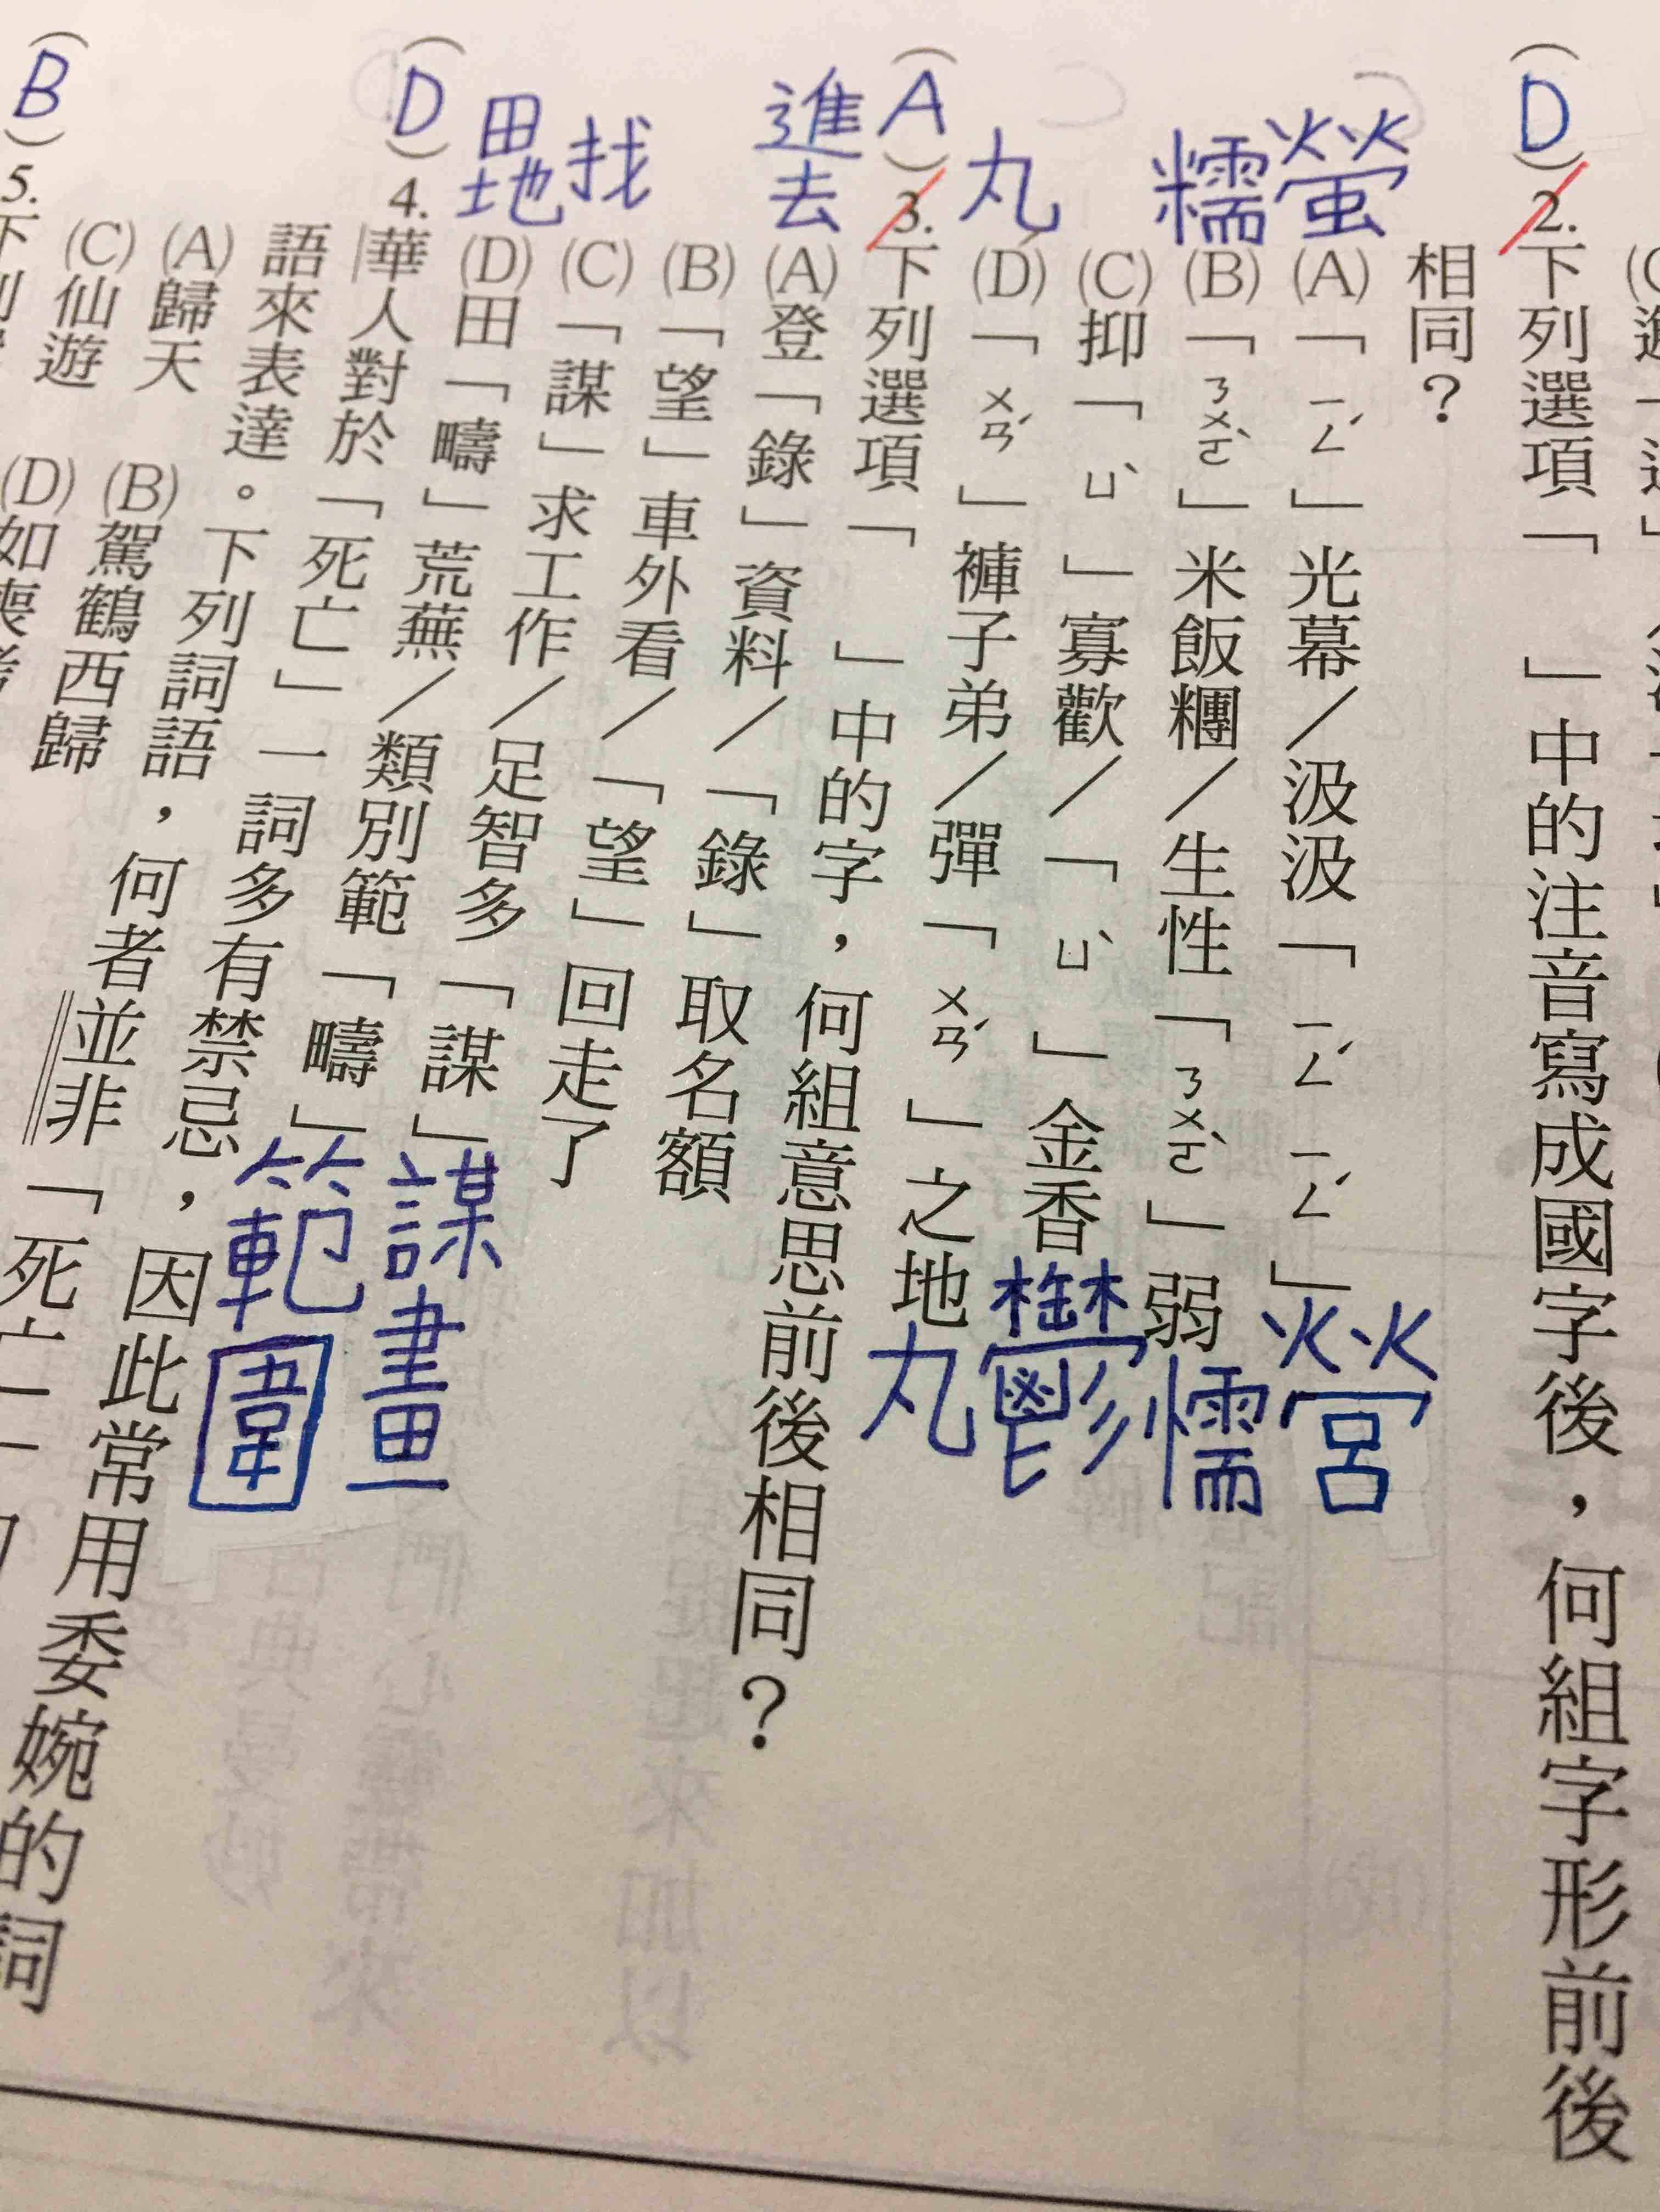 (D)2.下列選項「　」中的注音寫成國字後，何組字形前後
相同？
螢
(A)「ㄧㄥˊ」光幕／汲汲「ㄧㄥˊㄧㄥˊ」
營
糯
(B)「ㄋㄨㄛˋ」米飯糰／生性「ㄋㄨㄛˋ」弱
懦
(C)抑「ㄩˋ」寡歡／「ㄩˋ」金香
鬱
丸
(D)「ㄨㄢˊ」褲子弟／彈「ㄨㄢˊ」之地
丸
(A)3.下列選項「　」中的字，何組意思前後相同？
進去
(A)登「錄」資料／「錄」取名額
(B)「望」車外看／「望」回走了
找
(C)「謀」求工作／足智多「謀」
謀畫
田地
(D)田「疇」荒蕪／類別範「疇」
範圍
(D)4.華人對於「死亡」一詞多有禁忌，因此常用委婉的詞
語來表達。下列詞語，何者並非「死亡」
(A)歸天
(B)駕鶴西歸
(C)仙遊
(D)如喪考
(B)5.下列